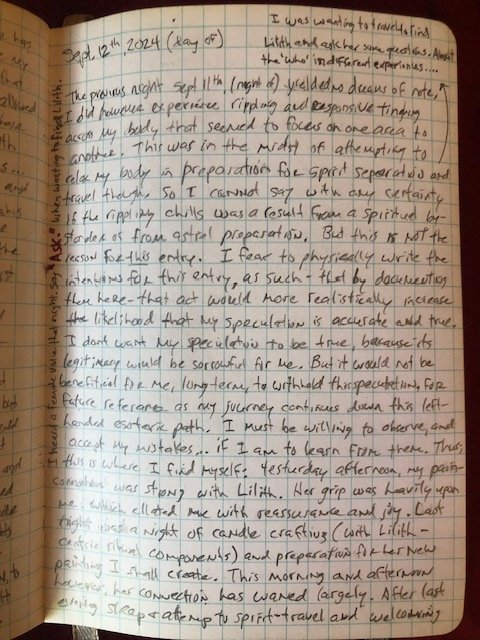 I was wanting to travel to find
Lilith and ask her some questions. About
the "who" in different experiences....
Sept. 12th, 2024 (day of)
The previous night Sept 11th, (night of) yielded no dreams of note,
I did however experience rippling and responsive tinging
across my body that seemed to focus on one area to
another. This was in the midst of attempting to
relax my body in preparation for spirit seperation and
travel though. So I cannot say with any certainty
if the rippling chills was a result from a spiritual by-
stander or from astral preparation. But this is not the
reason for this entry. I fear to physically write the
intentions for this entry, as such - that by documenting
them here - that act would more realistically increase
the likelihood that my speculation is accurate and true.
I dont want my speculation to be true, because its
legitimacy would be sorrowful for me. But it would not be
beneficial for me, long-term, to withhold this speculation, for
future reference as my journey continues down this left-
handed esoteric path. I must be willing to observe, and
accept my mistakes... if I am to learn from them. Thus;
this is where I find myself: Yesturday afternoon, my
connection was strong with Lilith. Her grip was heavily upon
me, which elated me with reassurance and joy. Last
night was a night of candle crafting (with Lilith-
centric ritual components) and preparation for her new
painting I shall create. This morning and afternoon
however, her connection has waned largely. After last
evening sleep + attempt to spirit-travel and welcoming
I heard a female voice that night, say "Ask." when wanting to find Lilith.